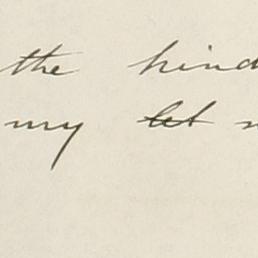 the hind
my let